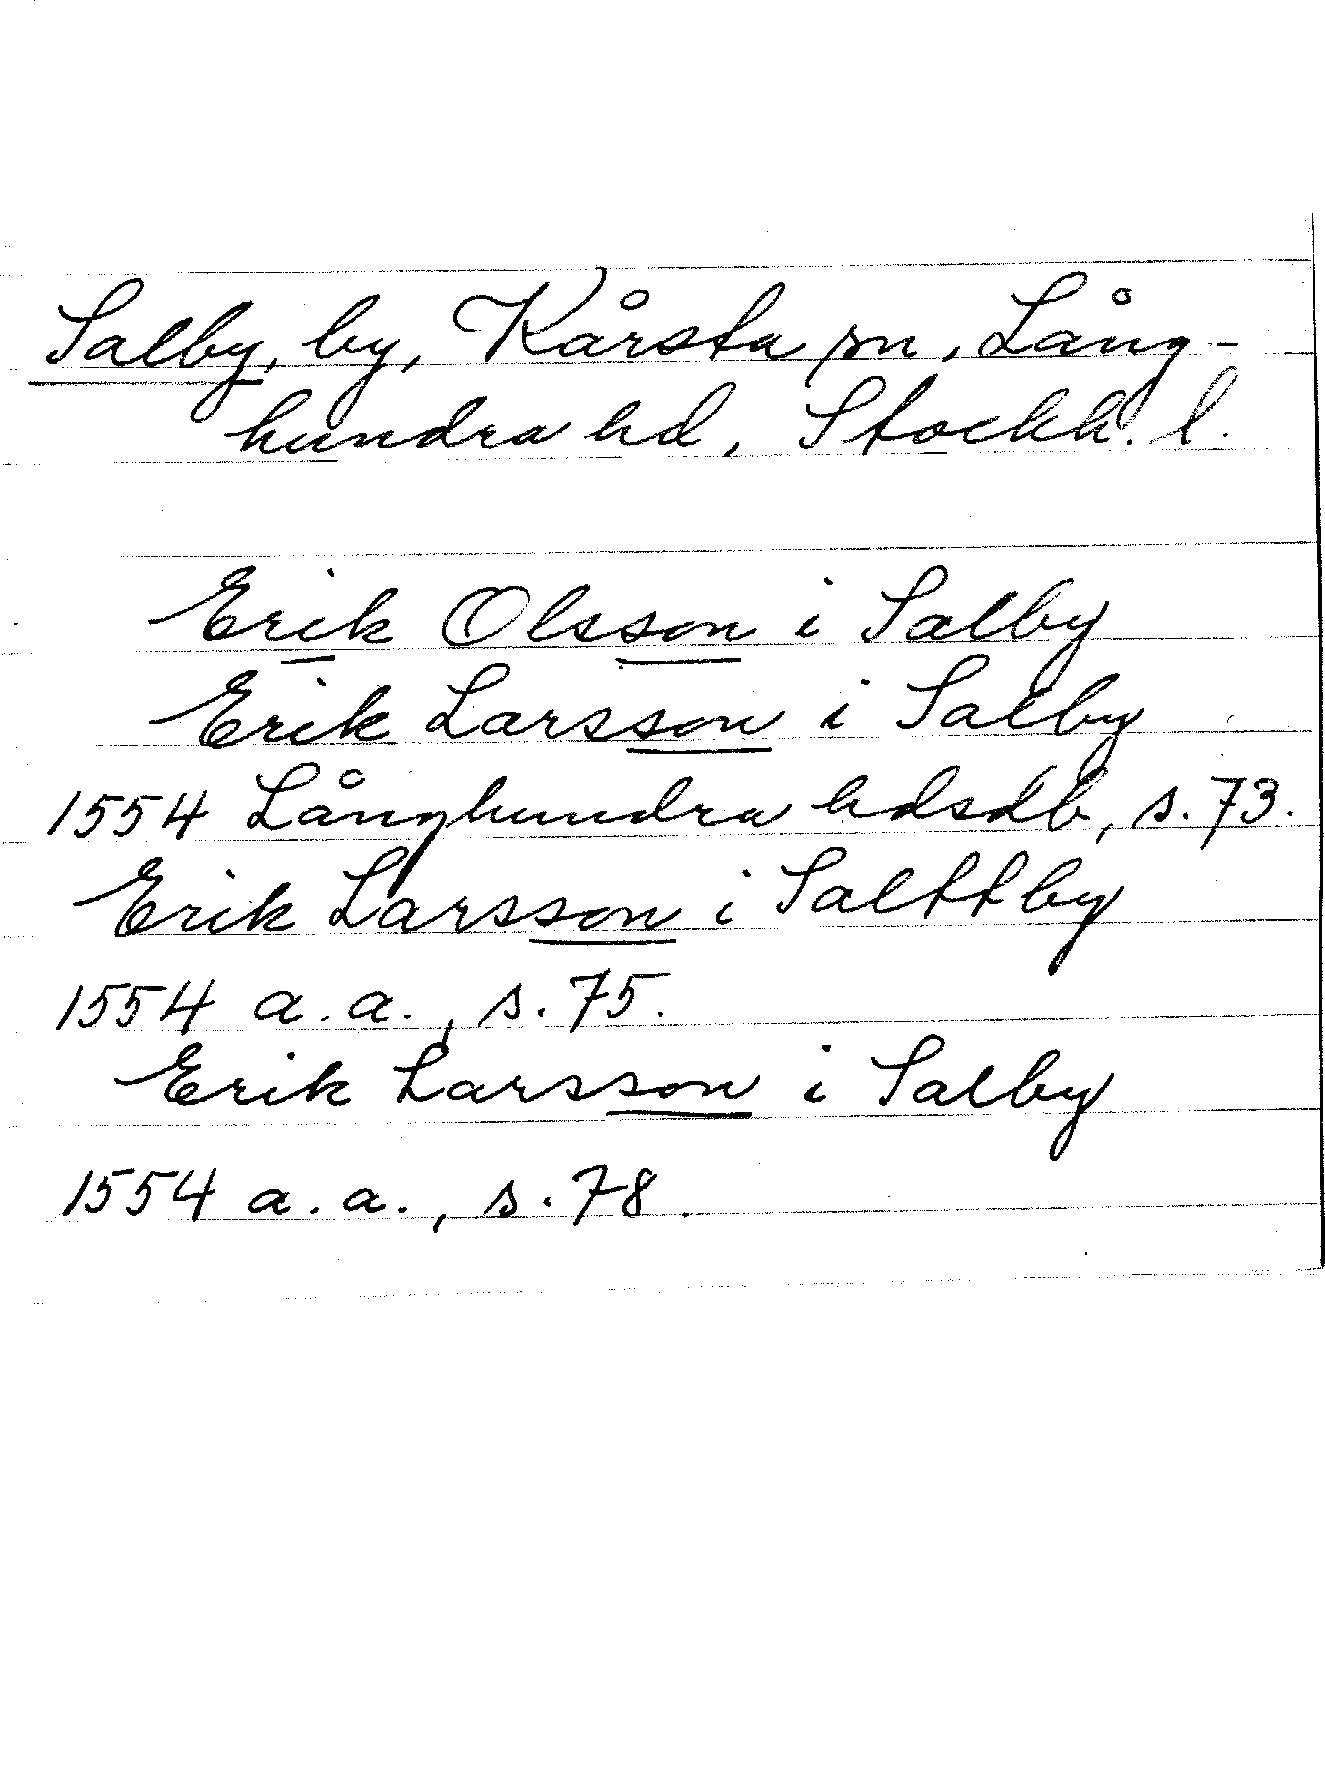 Salby, by, Kårsta sn, Lång-
hundra hd, Stockh. l.
Erik Olsson i Salby
Erik Larsson i Salby
1554 Långhundra hdsdb, s. 73.
Erik Larsson i Salttby
1554 a. a., s. 75.
Erik Larsson i Salby
1554 a. a., s. 78.